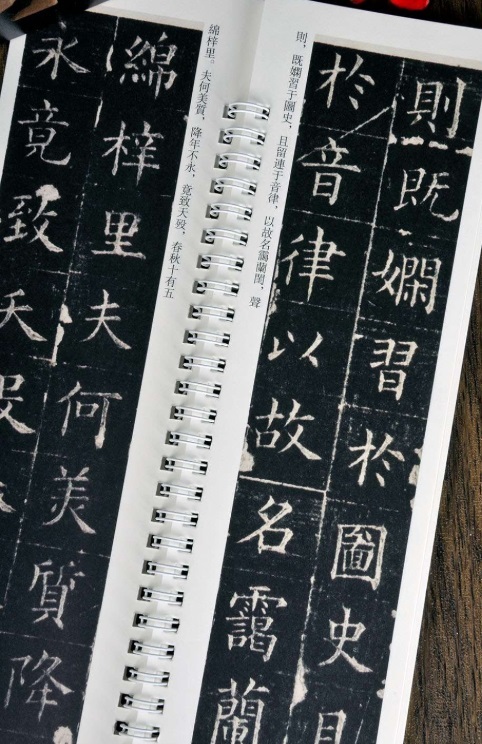 則既嫻習於圖史且
於音律以故名靄蘭
則，既嫻習于圖史，且留連于音律，以故名靄蘭閨，聲
綿梓里。夫何美質，降年不永，竟致夭殁，春秋十有五
綿梓里夫何美質降
永竟致夭殁